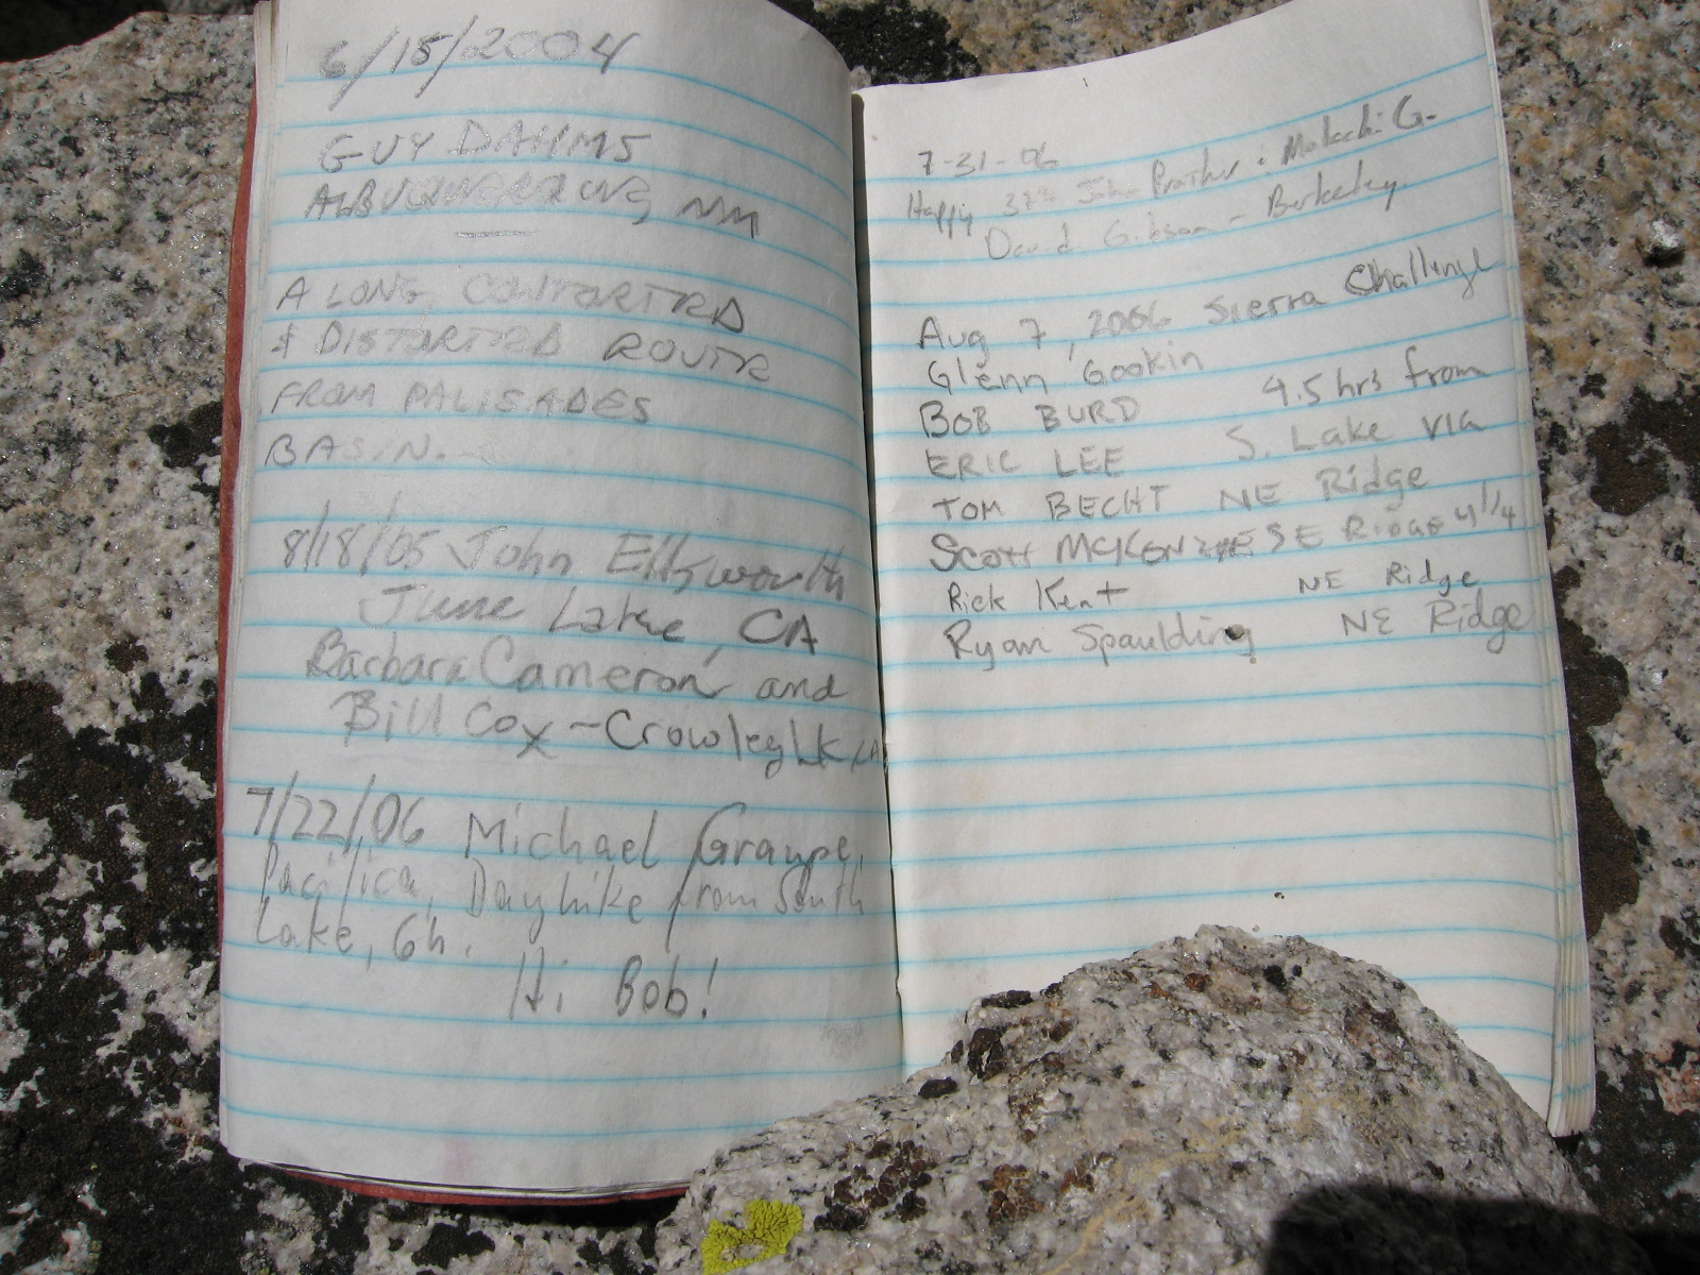 6/15/2004
GUY DAHMS
NM
A LONG, CONTORTED
& DISTORTED ROUTE
FROM PALISADES
BASIN.
8/18/05 John Ellsworth
June Lake, CA
Barbara Cameron and
Bill Cox - Crowley Lk, CA
7/22/06 Michael Graupe,
Pacifica, Dayhike from South
Lake, 6h.
Hi Bob!
7-31-06
Happy John Prather : G.
David Gibson - Berkeley.
Aug 7, 2006 Sierra Challenge
Glenn Gookin
BOB BURD 4.5 hrs from
ERIC LEE S. Lake via
TOM BECHT NE Ridge
Scott McKenzie SE Ridge 4 1/4
Rick Kent NE Ridge
Ryan Spaulding NE Ridge